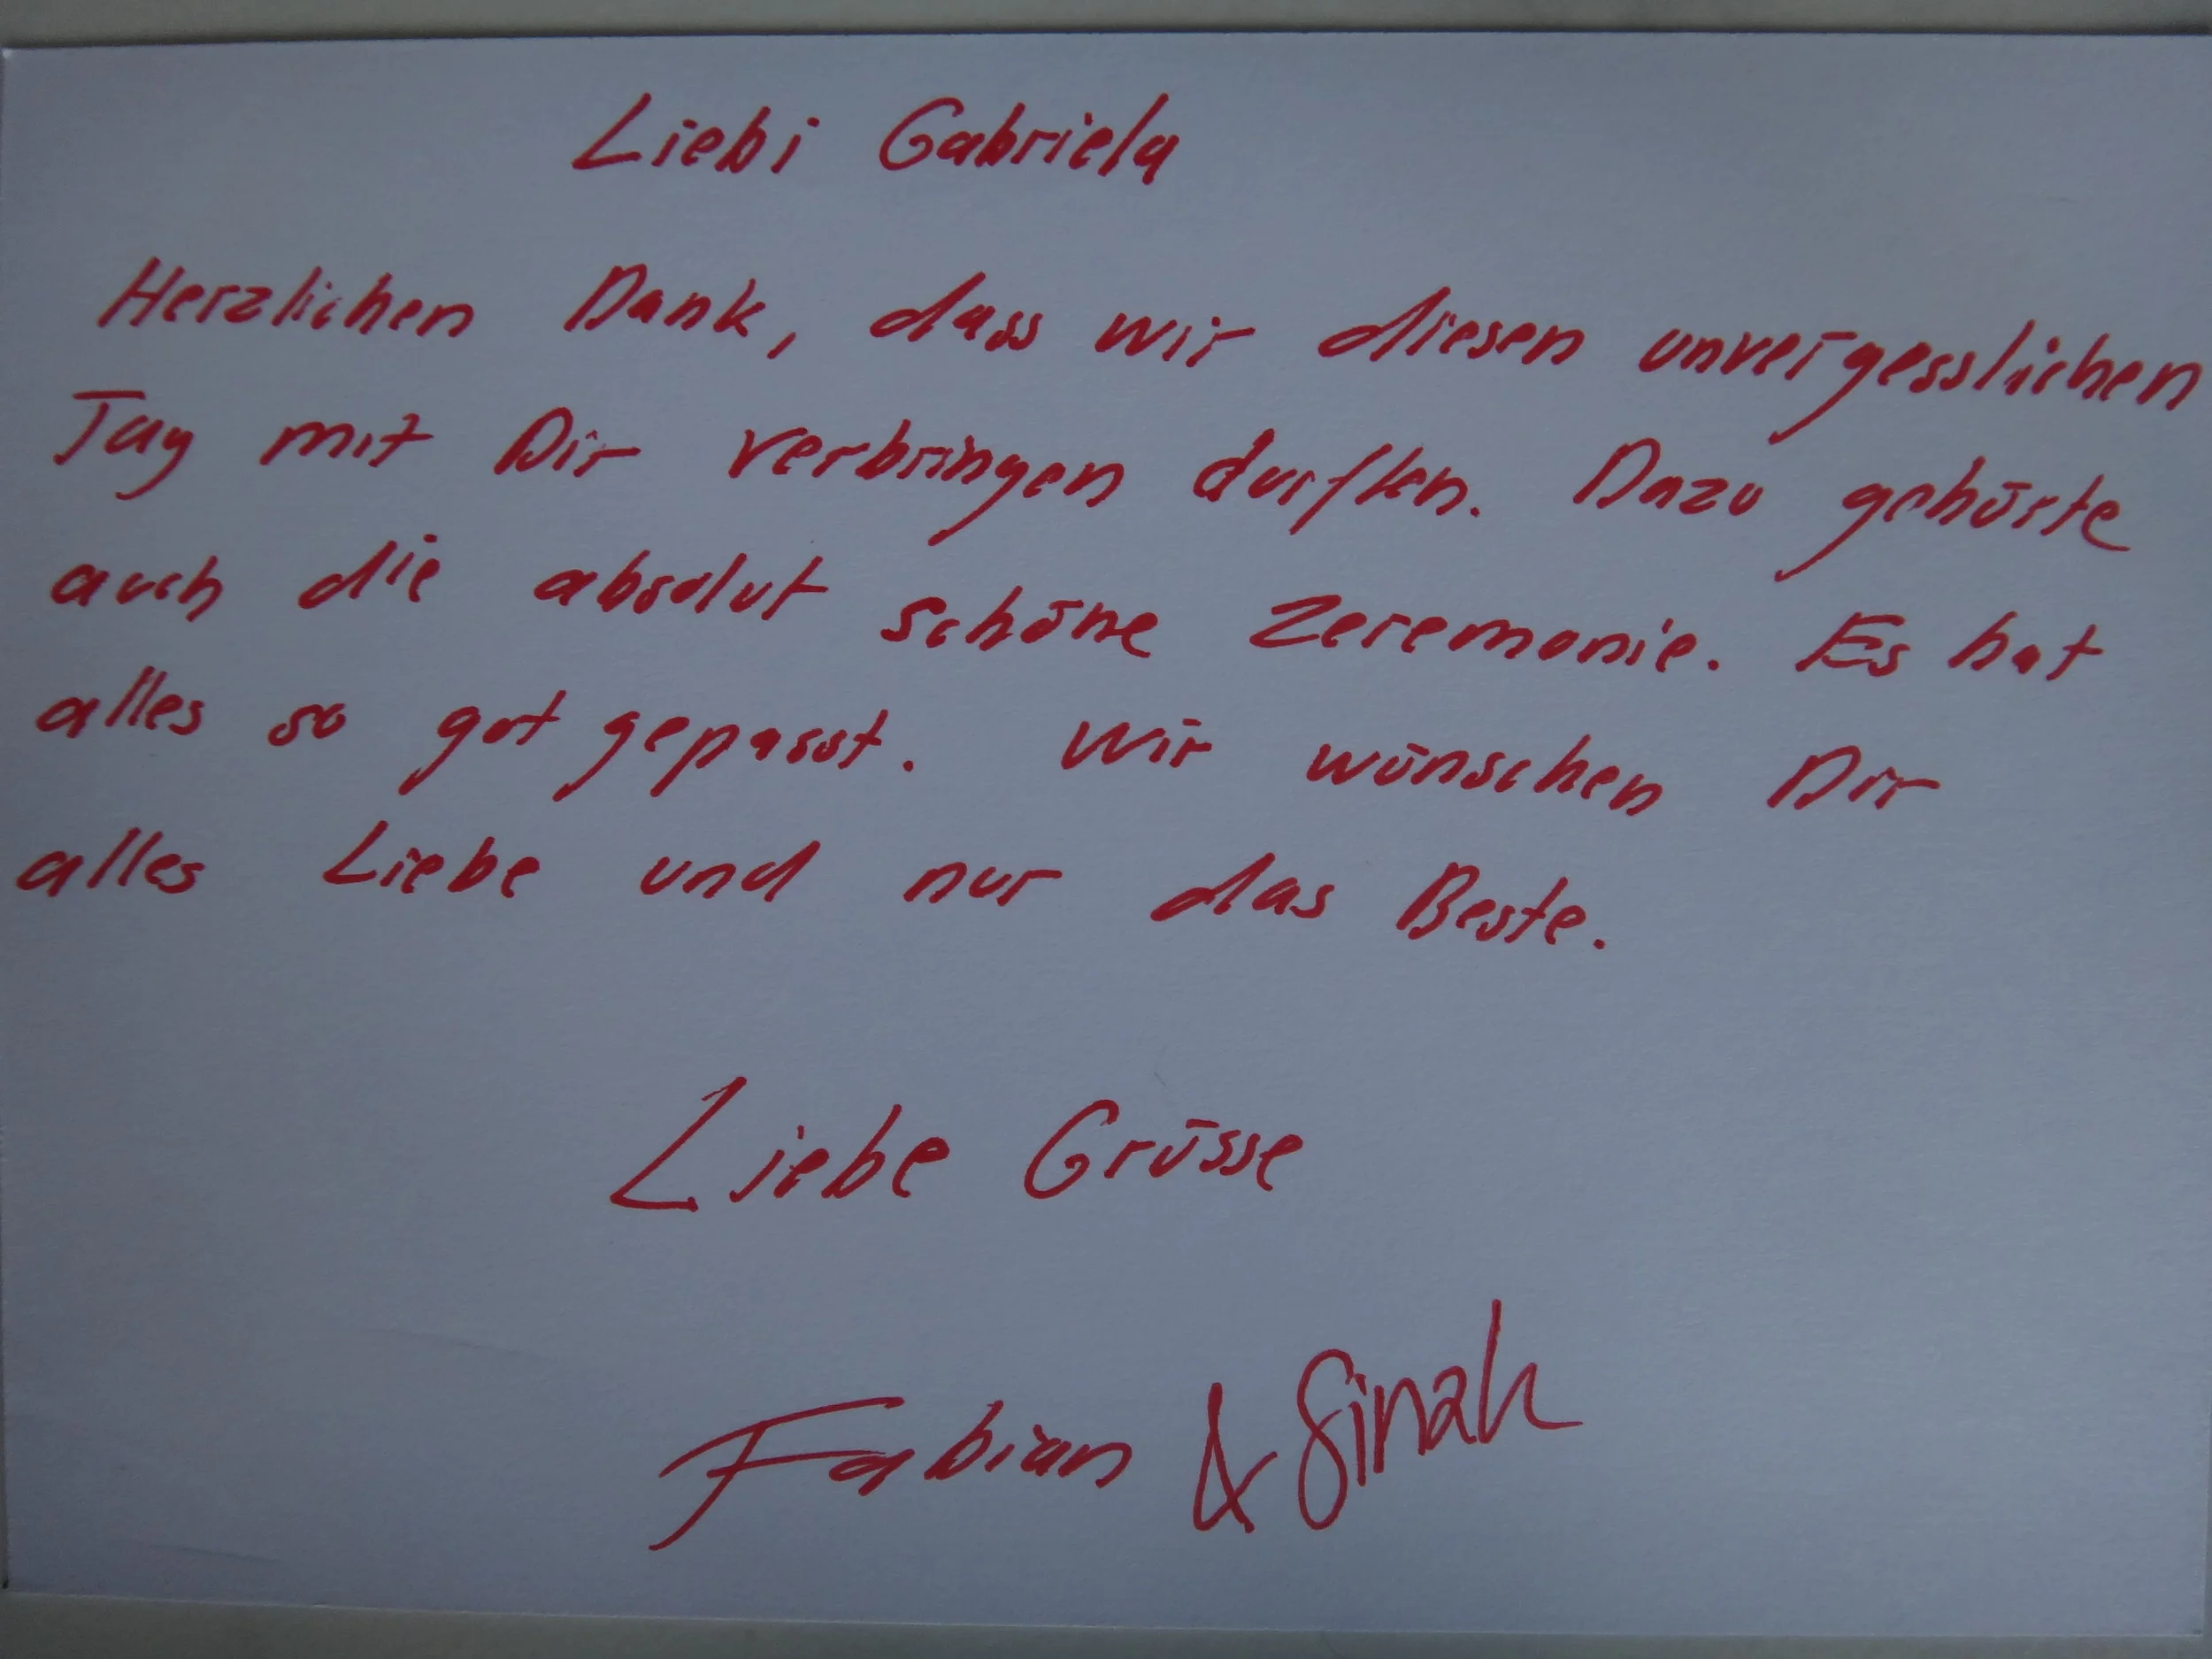 Liebi Gabriela
Herzlichen Dank, dass wir diesen unvergesslichen
Tag mit Dir verbringen durften. Dazu gehörte
auch die absolut schöne Zeremonie. Es hat
alles so gut gepasst. Wir wünschen Dir
alles Liebe und nur das Beste.
Liebe Grüsse
Fabian & Sinah